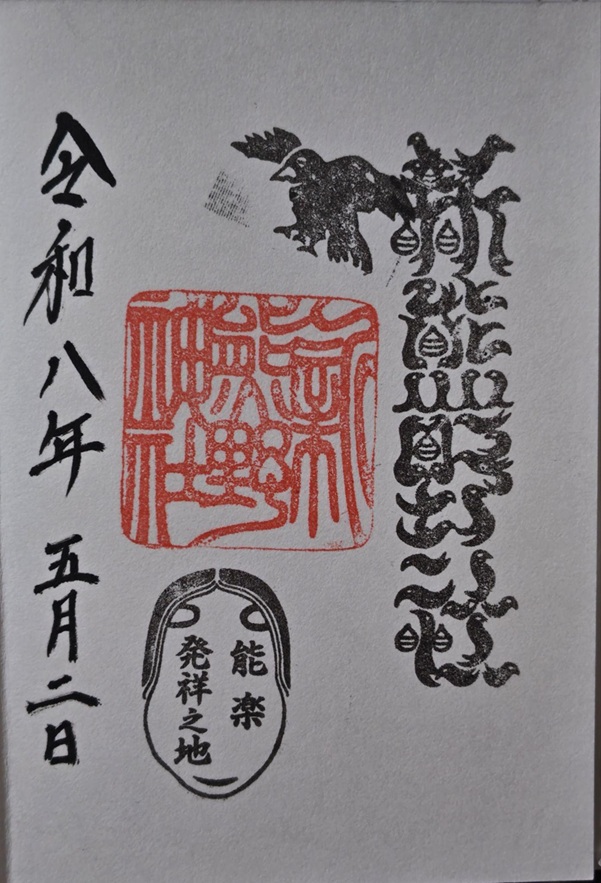 新熊野
新熊野神社
能楽
発祥之地
令和八年 五月二日